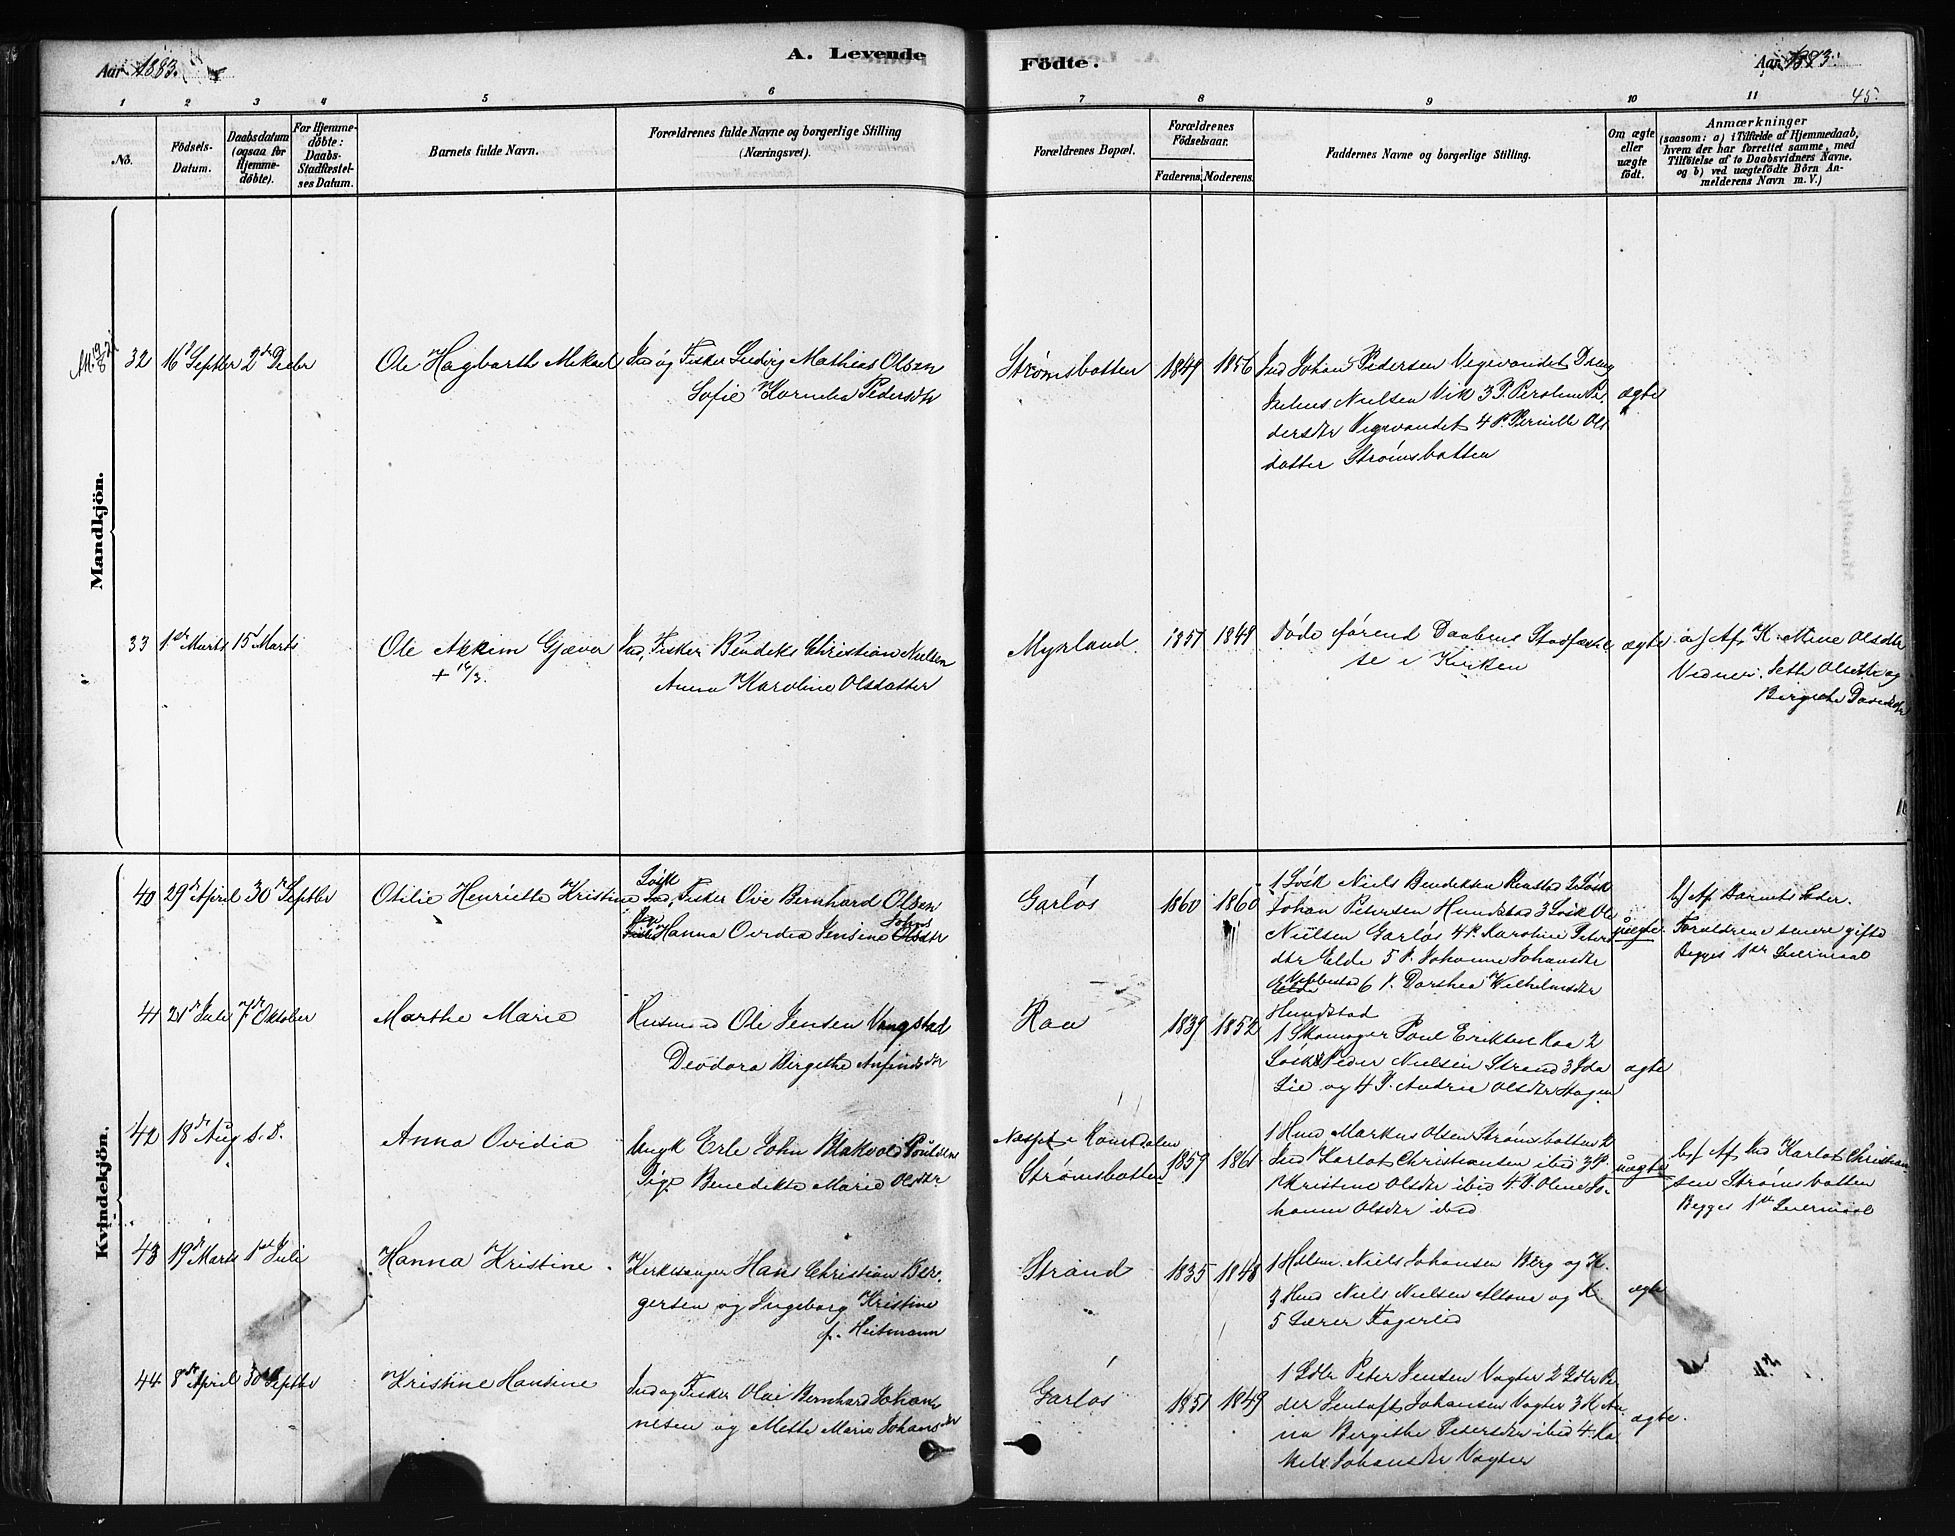 Aar 1883.
A. Levende
Födte.
Aar 1883.
45.
1 2 3 4 5 6 7 8 9 10 11
No.
Födsels-
Datum.
Daabsdatum
(ogsaa for
Hjemme-
döbte).
For Hjemme-
döbte:
Daabs-
Stadfæstel-
ses Datum.
Barnets fulde Navn.
Forældrenes fulde Navne og borgerlige Stilling
(Næringsvei).
Forældrenes Bopæl.
Forældrenes
Födselsaar.
Faderens. Moderens.
Faddernes Navne og borgerlige Stilling.
Om ægte
eller
uægte
födt.
Anmærkninger
(saasom: a) i Tilfælde af Hjemmedaab,
hvem der har forrettet samme, med
Tilföielse af to Daabsvidners Navne.
og b) ved uægtefödte Börn An-
melderens Navn m. V.)
Mandkjön.
32
16d Septbr
2den Decbr
Ole Hagbarth Mikael
Ind og Fisker Ludvig Mathias Olsen
Sofie Kornelia Pedersdtr
Strømsbotten
1849
1856
Ind Johan Pedersen Vegvandet Dreng
Julius Nielsen Vik 3 P. Peroline Pe-
dersdtr Vegvandet 4 P. Pernille Ols
datter Strømsbotten
ægte
33
1ste Marts
15 Marts
Ole Akkim Gjæver
+ 16/3.
Ind, Fisker Bendiks Christian Nielsen
Anna Karoline Olsdatter
Myrland.
1851
1849
Døde førend Daabens Stadfæstel
se i Kirken
ægte
a) Af K. Mine Olsdtr
Vidner: Jette Olsdtr og
Birgithe Davidsdtr
Kvindekjön.
40
29de April
30te Septbr
Otilie Henriette Kristine
Løsk
Ind, Fisker Ove Bernhard Olsen
Hanna Ovidia Jensine Olsdtr
Garløs
1860
1860
1 Løsk Niels Bendiktsen Renstad 2 Løsk
Johan Petersen Hundstad 3 Løsk Ole
Nielsen Garløs 4 P. Karoline Peters
dtr Elde 5 P. Johanne Johansdtr
6 P. Dorthea Wilhelmsdtr
Hundstad
uægte.
b) Af Barnets Fader.
Forældrene senere gifte
Begges 1ste Leiermaal
41
21de Juli
7de Oktober
Marthe Marie
Husmand Ole Jensen Vangstad
Deodora Birgithe Anfindsdtr
Raa
1839
1852
1 Skomager Poul Eriksen Raa 2
Løsk Peder Nielsen Strand 3 Ida
Lie og 4 P. Andrea Olsdtr Hagen
ægte
42
18de Aug
s. D.
Anna Ovidia
Ungk Erle John Blakvold Poulsen
Pige Benedikte Marie Olsdtr.
Næsset i Romsdalen
Strømsbotten
1859
1861
1 Husd Markus Olsen Strømsbotten 2
Ind Karlot Christiansen ibid 3 P.
Kristine Olsdtr ibid 4. P. Oline Jo-
hanna Olsdtr ibid
uægte
b) Af Ind Karlot Christian
sen Strømsbotten
Begges 1ste Leiermaal
43
19de Marts
1ste Juli
Hanna Kristine
Kirkesanger Hans Christian Ber-
gersen og Ingeborg Kristine
f. Heitmann
Strand
1835
1848
1 Holem. Niels Johansen Berg og K.
3 Husd Niels Nielsen Altona og K.
5 Lærer Fagerlid
ægte
44
8de April
30te Septbr
Kristine Hansine
Ind og Fisker Olai Bernhard Johan-
nesen og Mette Maria Johansdtr
Garløs
1851
1849
1 Gdbr Peter Jensen Vagter 2 Gdbr Pe-
der Jentoft Johansen Vagter 3 K An-
na Bergithe Petersdtr ibid 4. Ra-
kel Johansdtr Vagter
ægte.